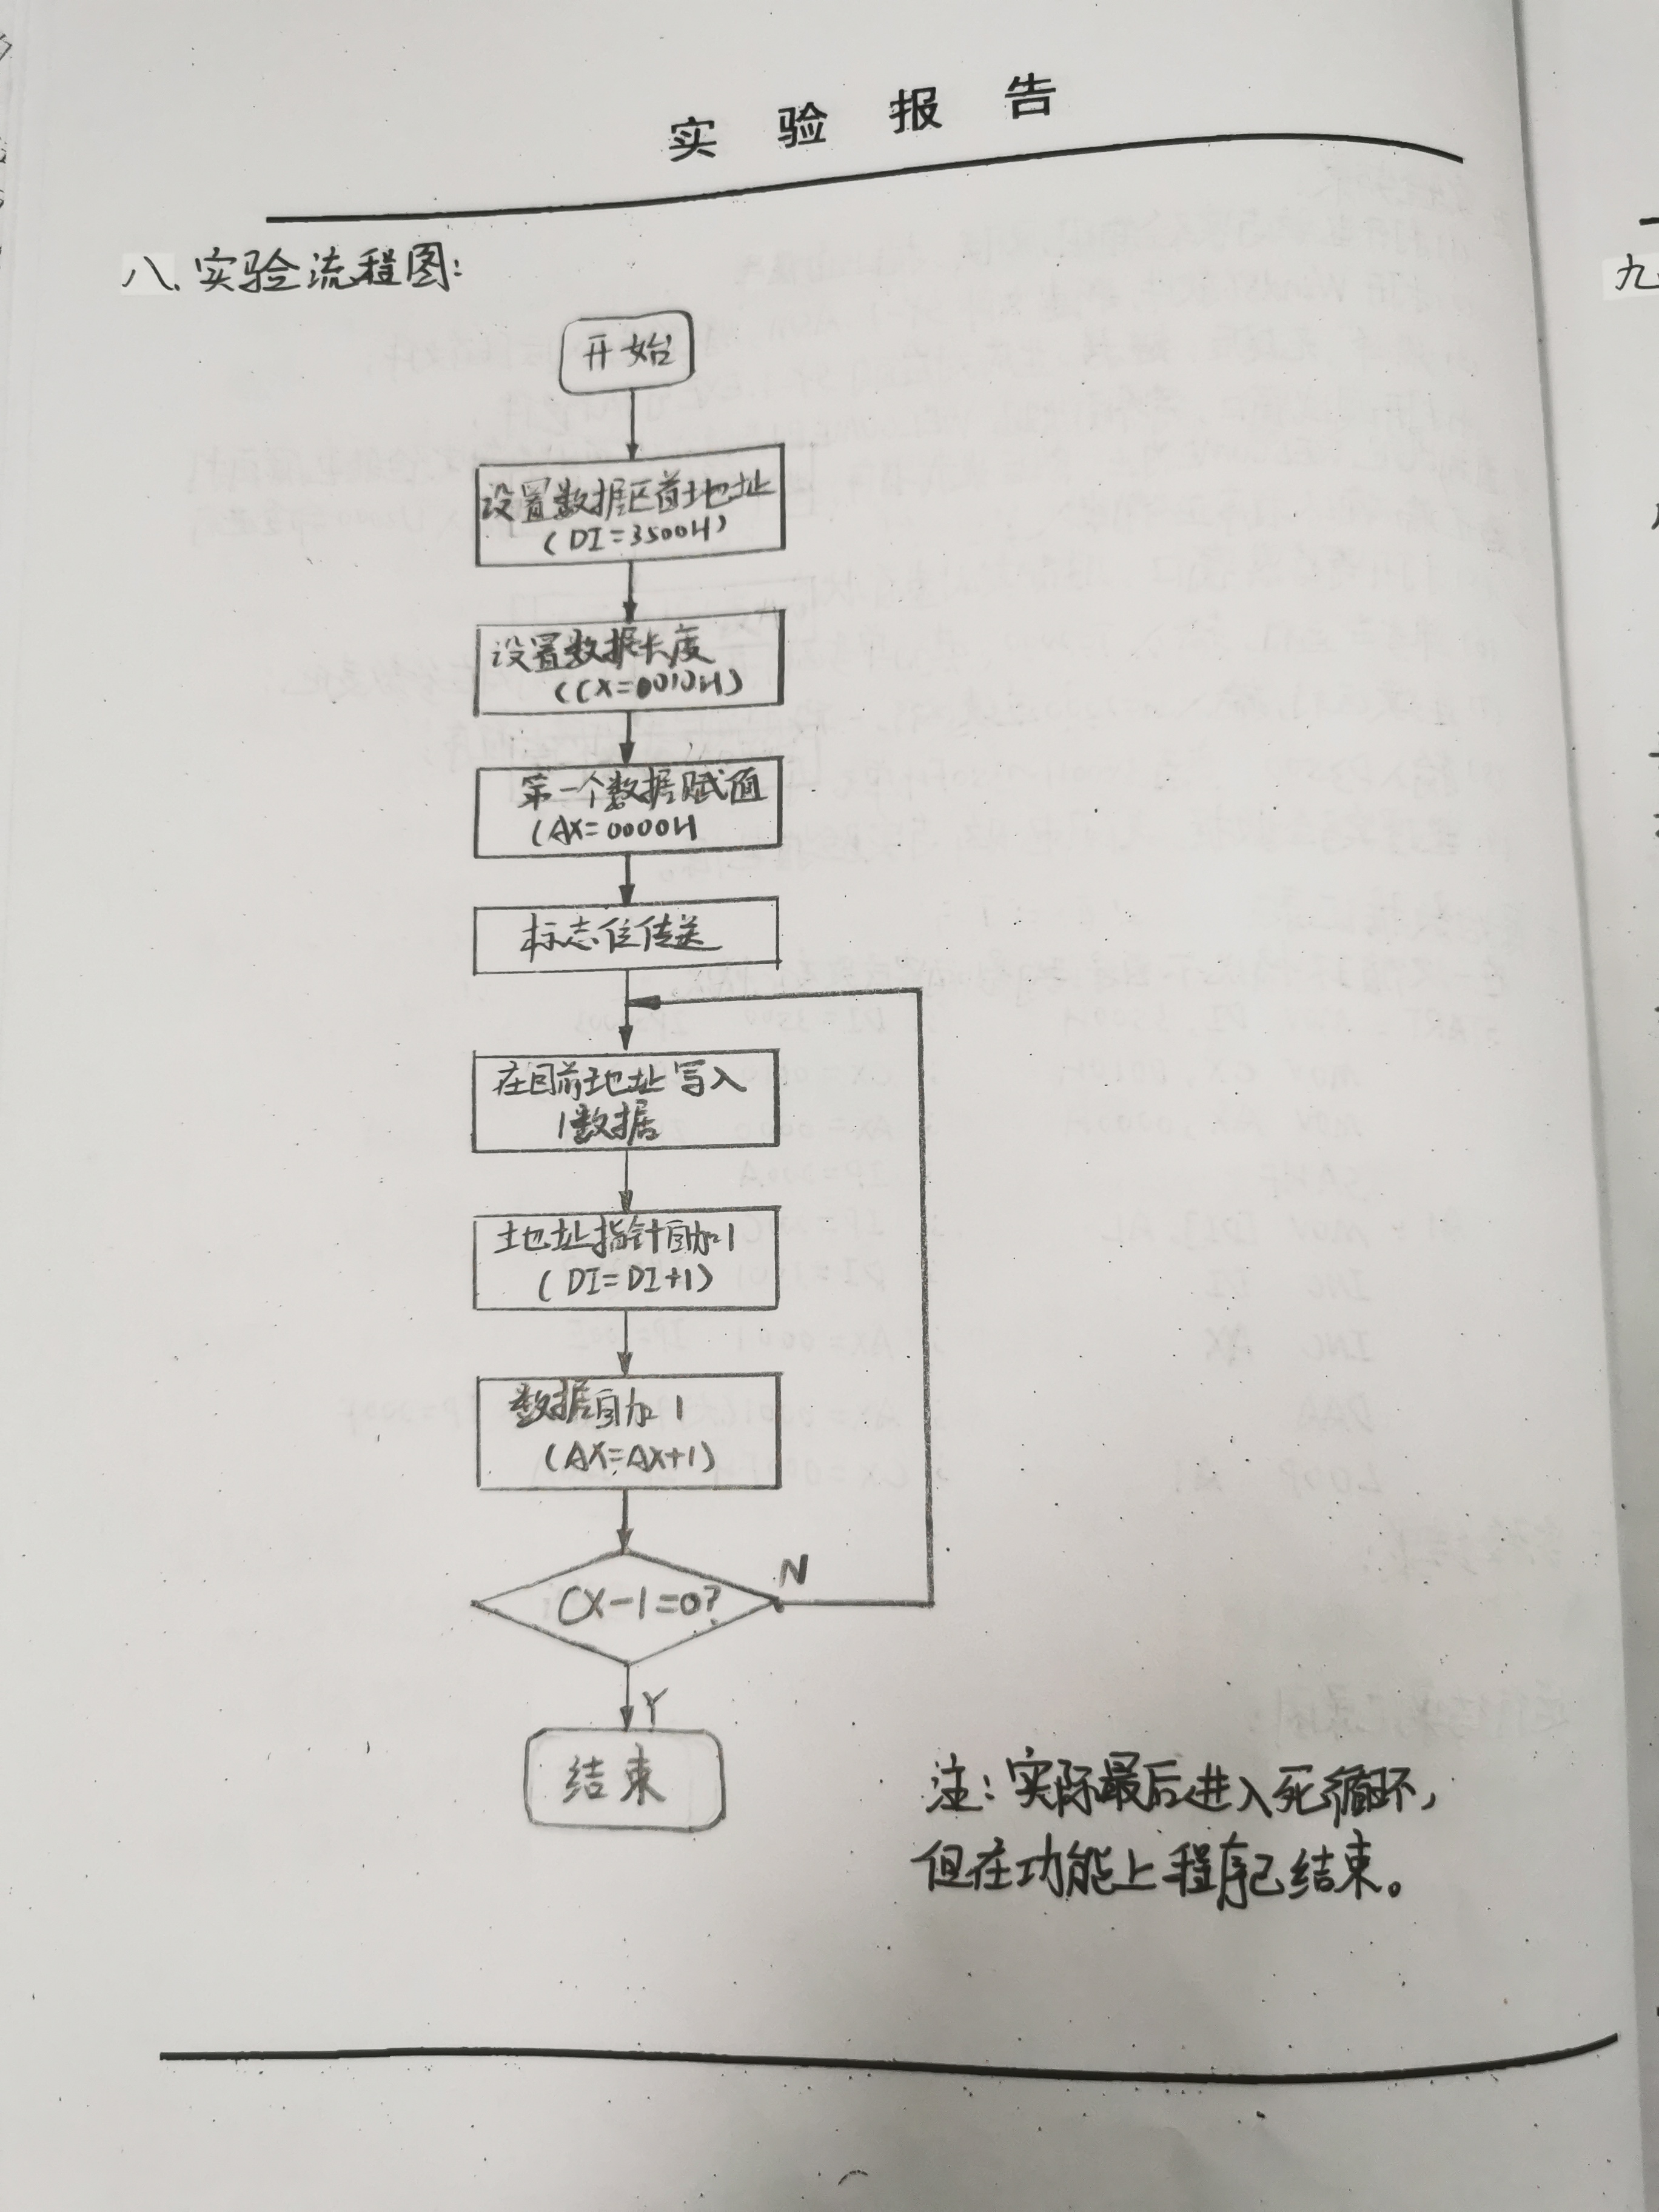 实验报告
八、实验流程图:
开始
设置数据区首地址
(DI=3500H)
设置数据长度
(CX=0010H)
第一个数据赋值
(AX=0000H
标志位传送
在目前地址写入
1数据
地址指针自加1
(DI=DI+1)
数据自加1
(AX=AX+1)
CX-1=0?
N
Y
结束
注:实际最后进入死循环,
但在功能上程序已结束。
九